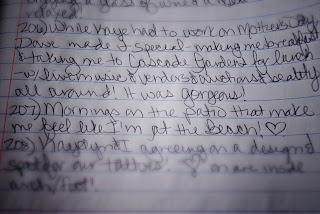 a glass of wine & a
relaxed!
206) While Kaye had to work on Mother's Day
Dave made it special - making me breakfast
& taking me to Cascade Gardens for lunch
- w/ live music & vendors & arts and beauty
all around! It was gorgeous!
207) Mornings on the patio that make
me feel like I'm at the beach! ♡
208) & I agreeing on a design &
spot for our tattoos! ♡ on are inside
arch/foot!